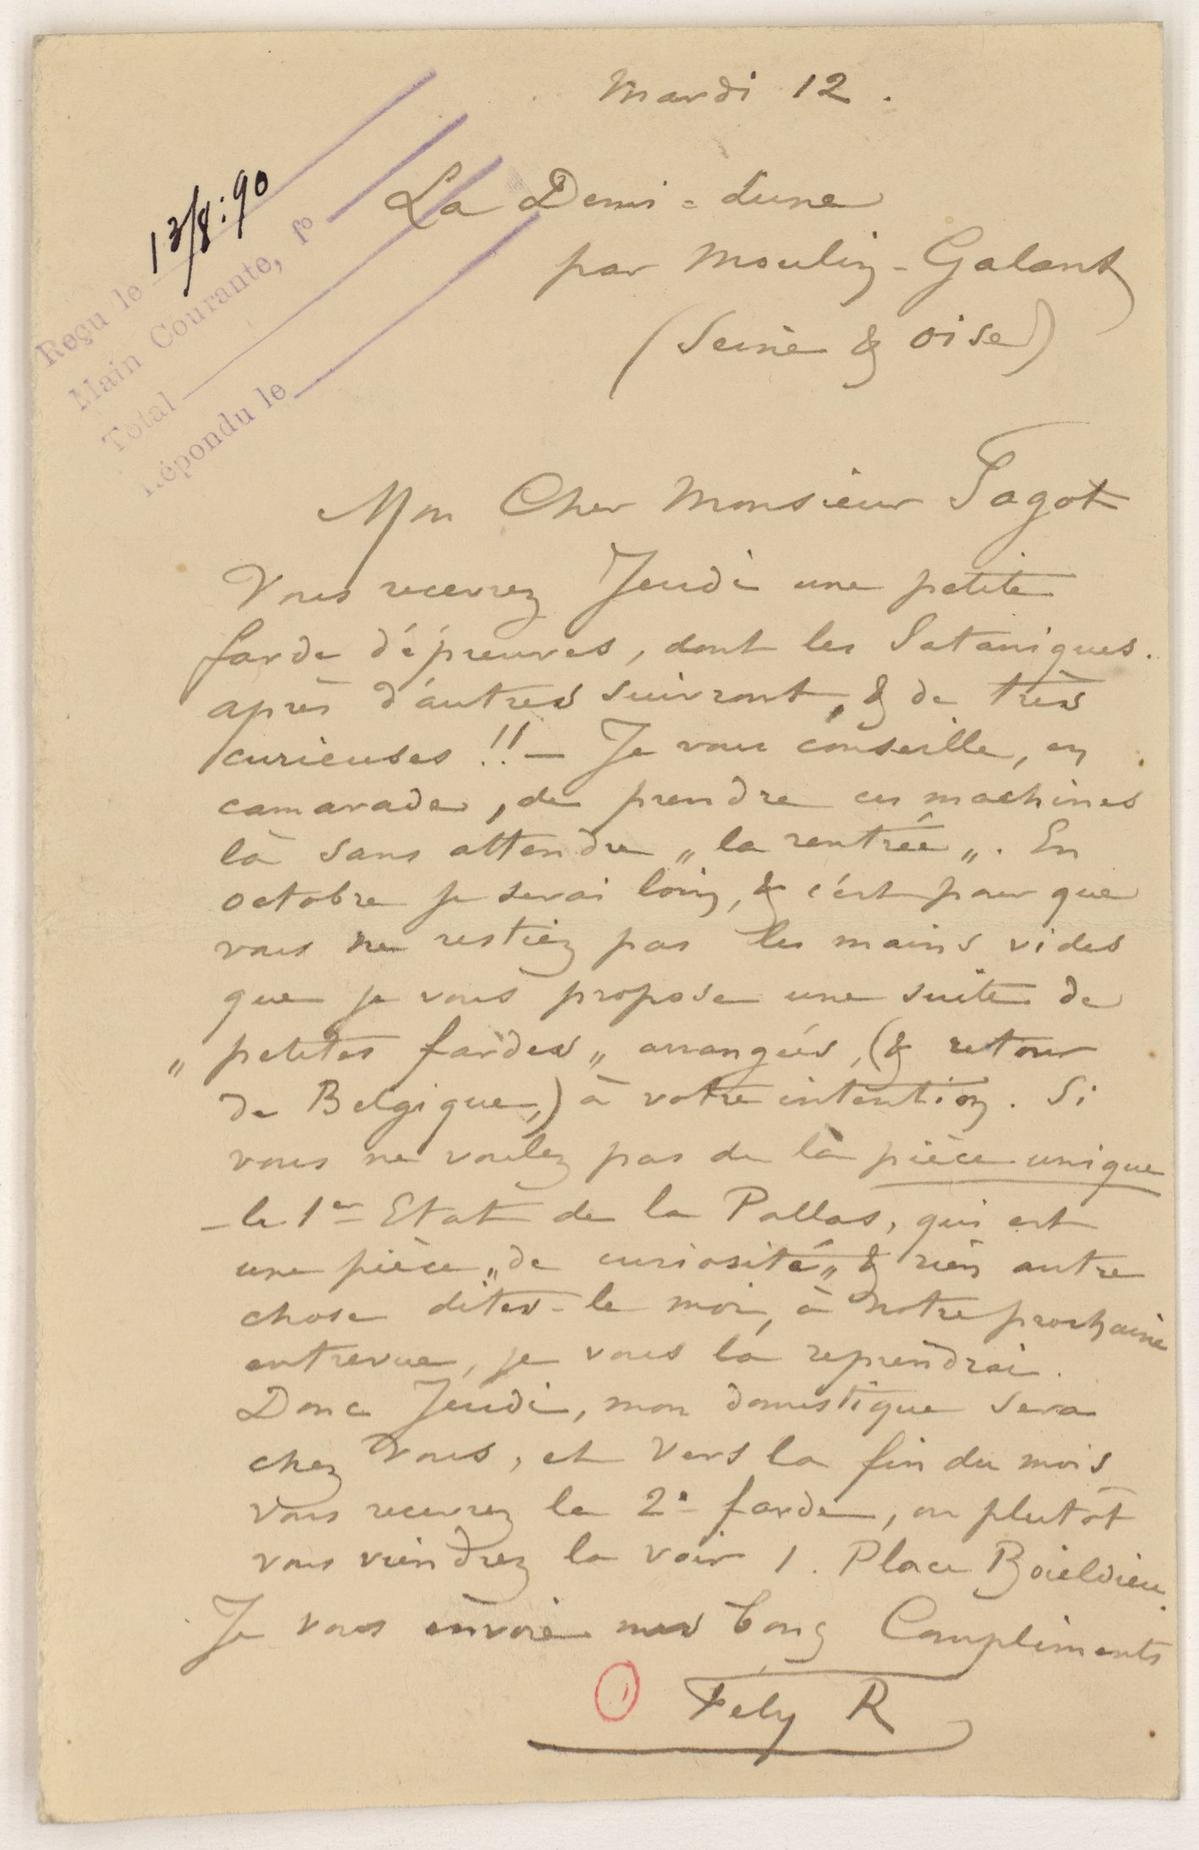 Mardi 12.
La Demi-Lune
par Moulin-Galant
(Seine & Oise)
Reçu le 13/8:90
Main Courante, fo
Total
Répondu le
Mon Cher Monsieur Pagot
Vous recevrez Jeudi une petite
farde d'épreuves, dont les Sataniques.
après d'autres suivront, & de très
curieuses !! — Je vous conseille, en
camarade, de prendre ces machines
là sans attendre „la rentrée„. En
octobre je serai loin, & c'est pour que
vous ne restiez pas les mains vides
que je vous propose une suite de
„petites fardes„ arrangées, (& retour
de Belgique,) à votre intention. Si
vous ne voulez pas de la pièce unique
– le 1er Etat de la Pallas, qui est
une pièce „de curiosité„ & rien autre
chose dites-le moi, à notre prochaine
entrevue, je vous la reprendrai.
Donc Jeudi, mon domestique sera
chez vous, et vers la fin du mois
vous recevrez la 2e farde, ou plutôt
vous viendrez la voir 1. Place Boieldieu.
Je vous envoie mes bons Compliments
Fély R